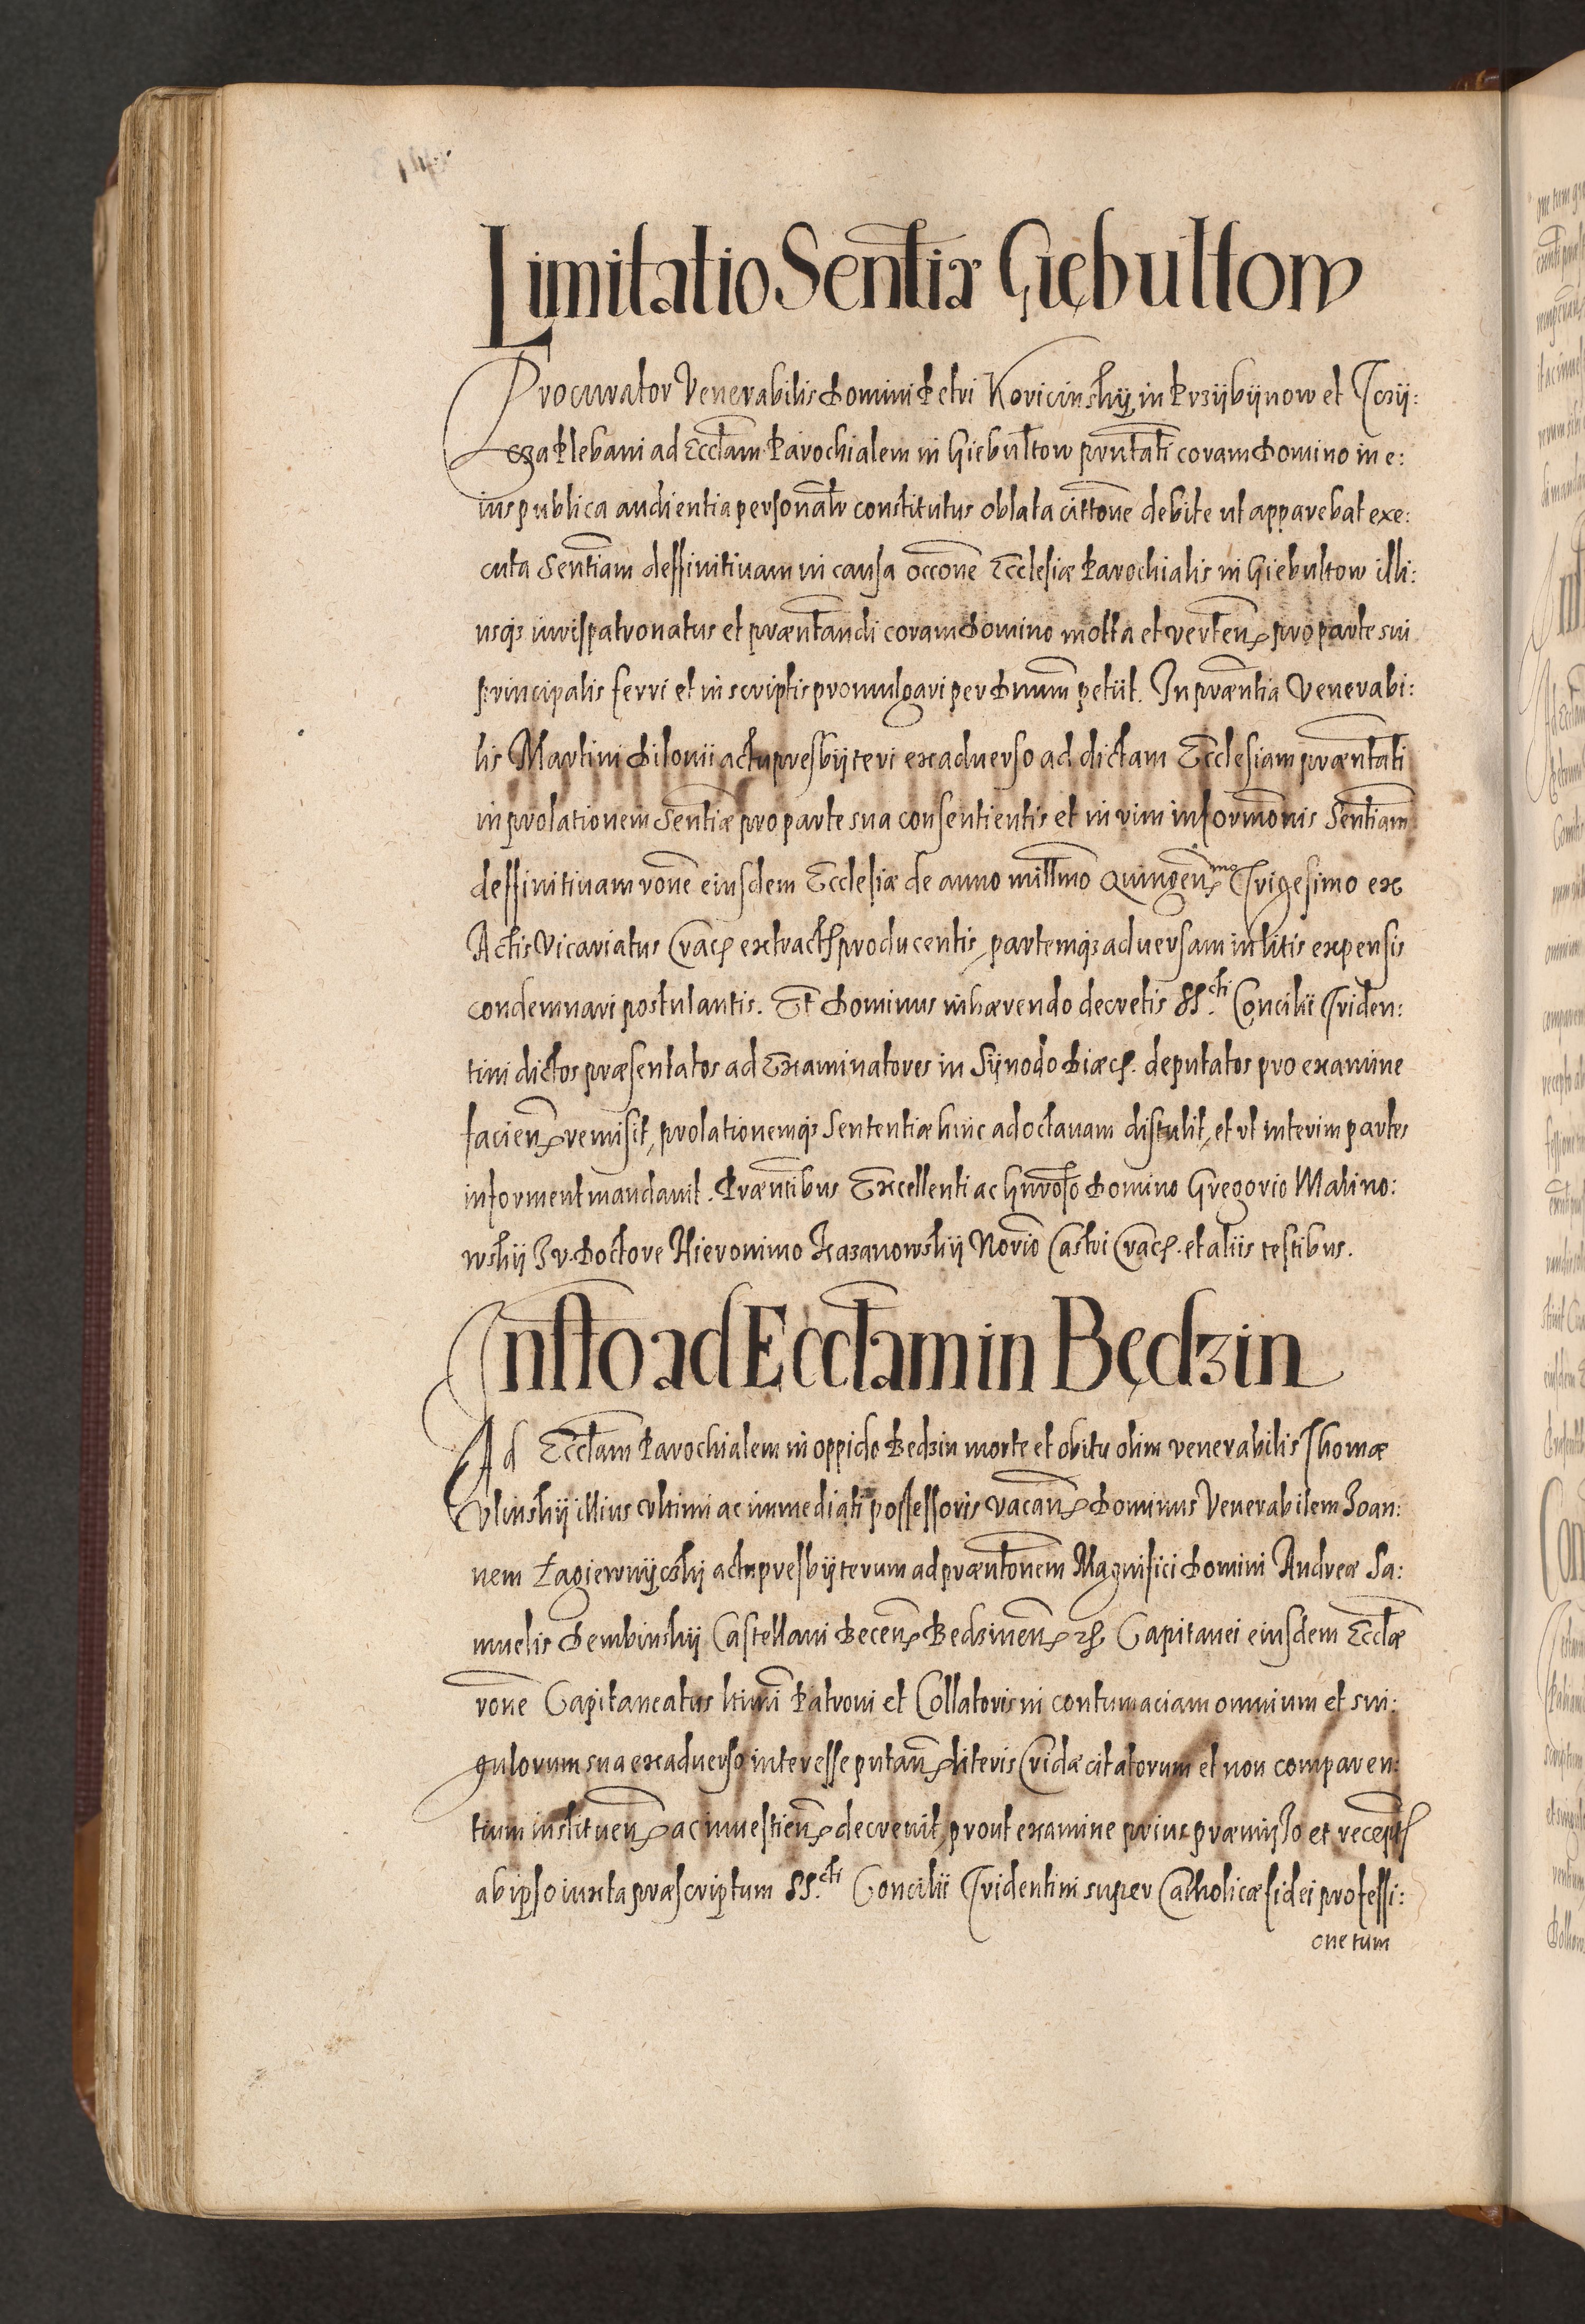 Limitatio Sentiæ Giębułtow
Procurator Venerabilis Domini Petri Koricinskÿ, in Przÿbÿnow et Trzÿ:
cza Plebani ad Eccłam Parochialem in Giebułtow prntati coram Domino in e:
ius publica audientia personałr constitutus oblata cittone debite ut apparebat exe:
cuta Sentiam deffinitiuam in causa occone Ecclesiæ Parochialis in Giebułtow illi:
usq3 iurispatronatus et præntandi coram Domino motta et verten pro parte sui
principalis ferri et in scriptis promulgari per Dnum petiit. In præntia Venerabi:
lis Martini Dilonii actu presbÿteri ex aduerso ad dictam Ecclesiam præntati
in prolationem Sentiæ pro parte sua consentientis et in vim informonis Sentiam
deffinitiuam rone eiusdem Ecclesiæ de anno millmo Quingenmo Trigesimo ex
Actis Vicariatus Crac extract producentis, partemq3 aduersam in litis expensis
condemnari postulantis. Et Dominus inhærendo decretis SS.cti Concilii Triden:
tini dictos præsentatos ad Examinatores in Sÿnodo Diæc. deputatos pro examine
facien remisit, prolationemq3 Sententiæ hinc ad octauam distulit, et ut interim partes
informent mandauit. Præntibus Excellenti ac Gnroso Domino Gregorio Malino:
wskÿ I v. Doctore Hieronimo Kazanowskÿ Norio Castri Crac. et aliis testibus.
Insto ad Eccłam in Będzin
Ad Eccłam Parochialem in oppido Bedzin morte et obitu olim venerabilis Thomæ
Vlinskÿ illius vltimi ac immediati possessoris vacan Dominus Venerabilem Ioan:
nem Łagiewnÿczkÿ actu presbÿterum ad præntonem Magnifici Domini Andreæ Sa:
muelis Dembinskÿ Castellani Becen Bedzinen etc. Capitanei eiusdem Eccłæ
rone Capitaneatus ltimi Patroni et Collatoris in contumaciam omnium et sin:
gulorum sua ex aduerso interesse putan literis Cridæ citatorum et non comparen:
tium instituen ac inuestien decreuit, prout examine prius præmisso et recept
ab ipso iuxta præscriptum SS.cti Concilii Tridentini super Catholicæ fidei professi:
one tum